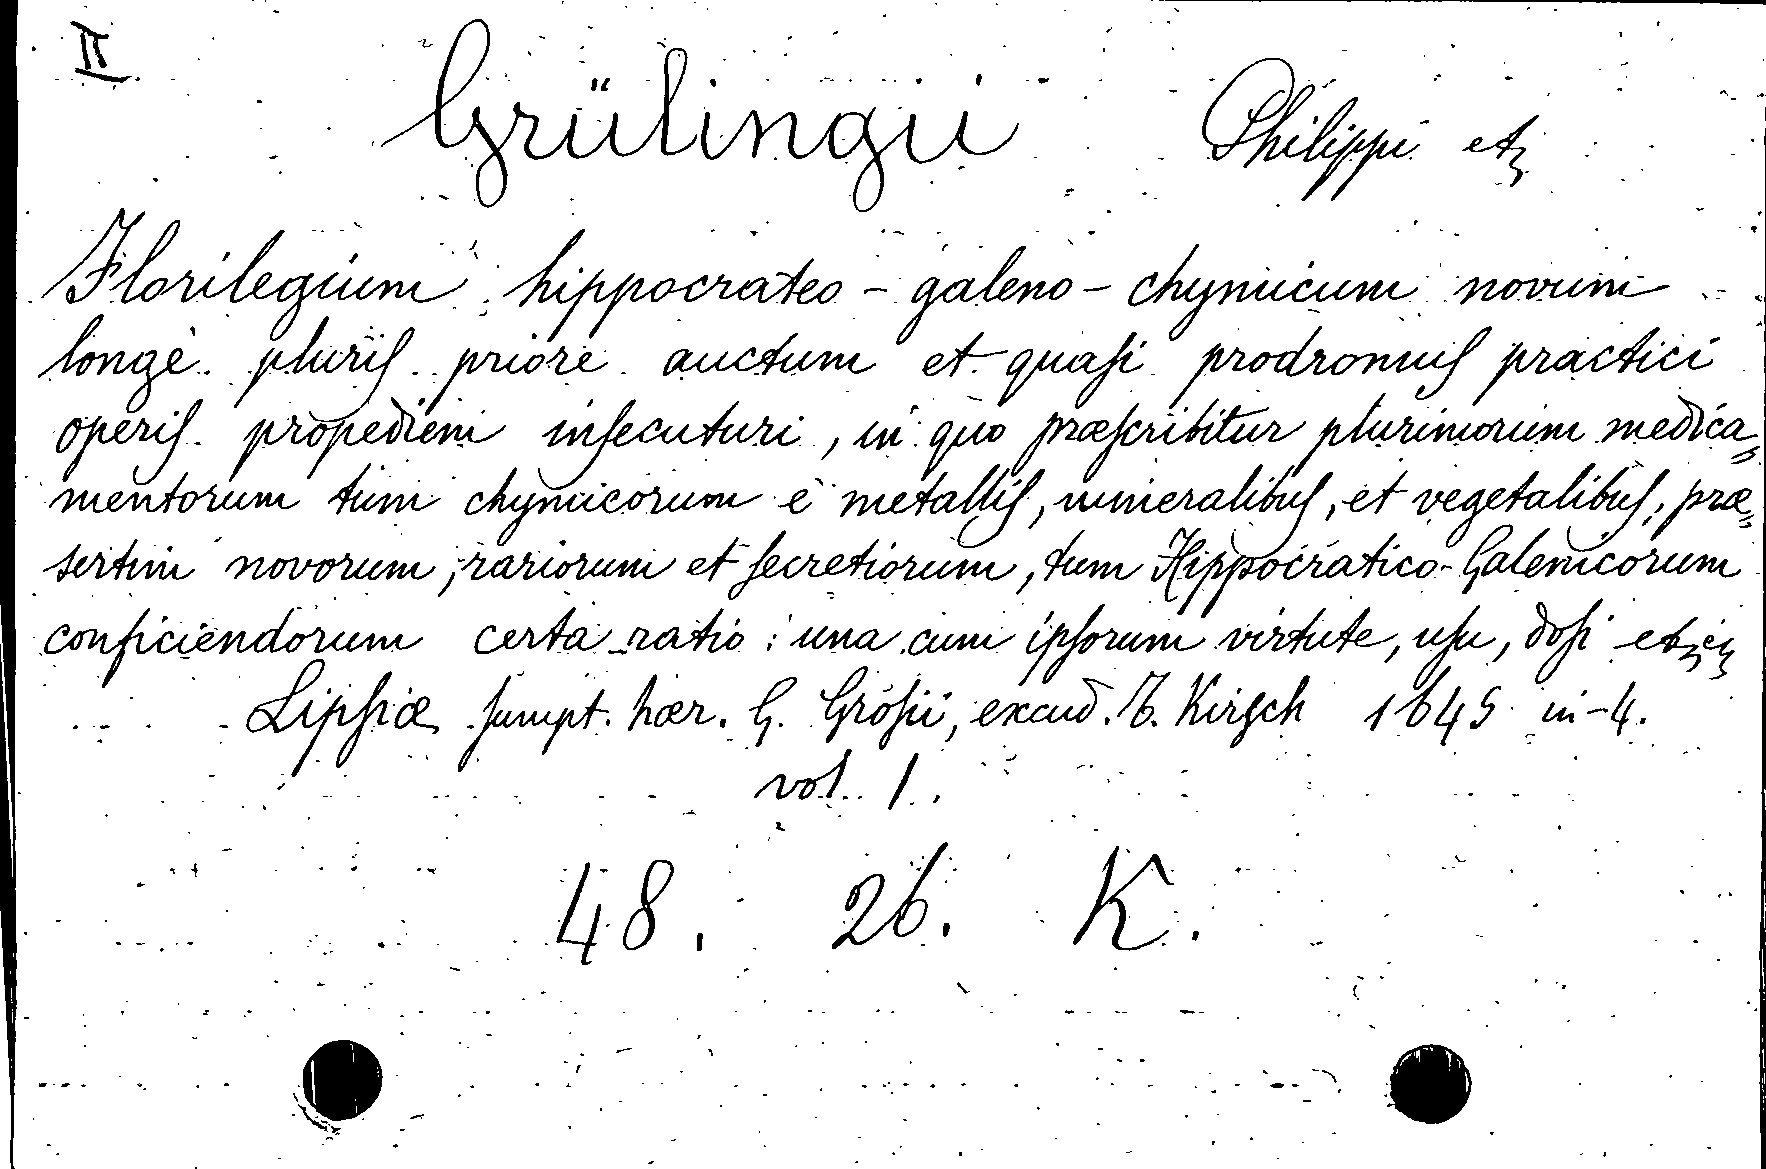 II
Grülingii Philippi etz
Florilegium hippocrateo - galeno - chymicum novum
longè pluris priore auctum et quasi prodromus practici
operis propediem insecuturi, in quo præscribitur plurimorum medica„
mentorum tum chymicorum è metallis, mineralibus, et vegetalibus, præ„
sertim novorum, rariorum et secretiorum, tum Hippocratico-Galenicorum
conficiendorum certa ratio: una cum ipsorum virtute, usu, dosi etz
Lipsiæ sumpt. hær. G. Grósii, excud. T. Kirsch 1645 in-4.
vol. 1.
48. 26. K.